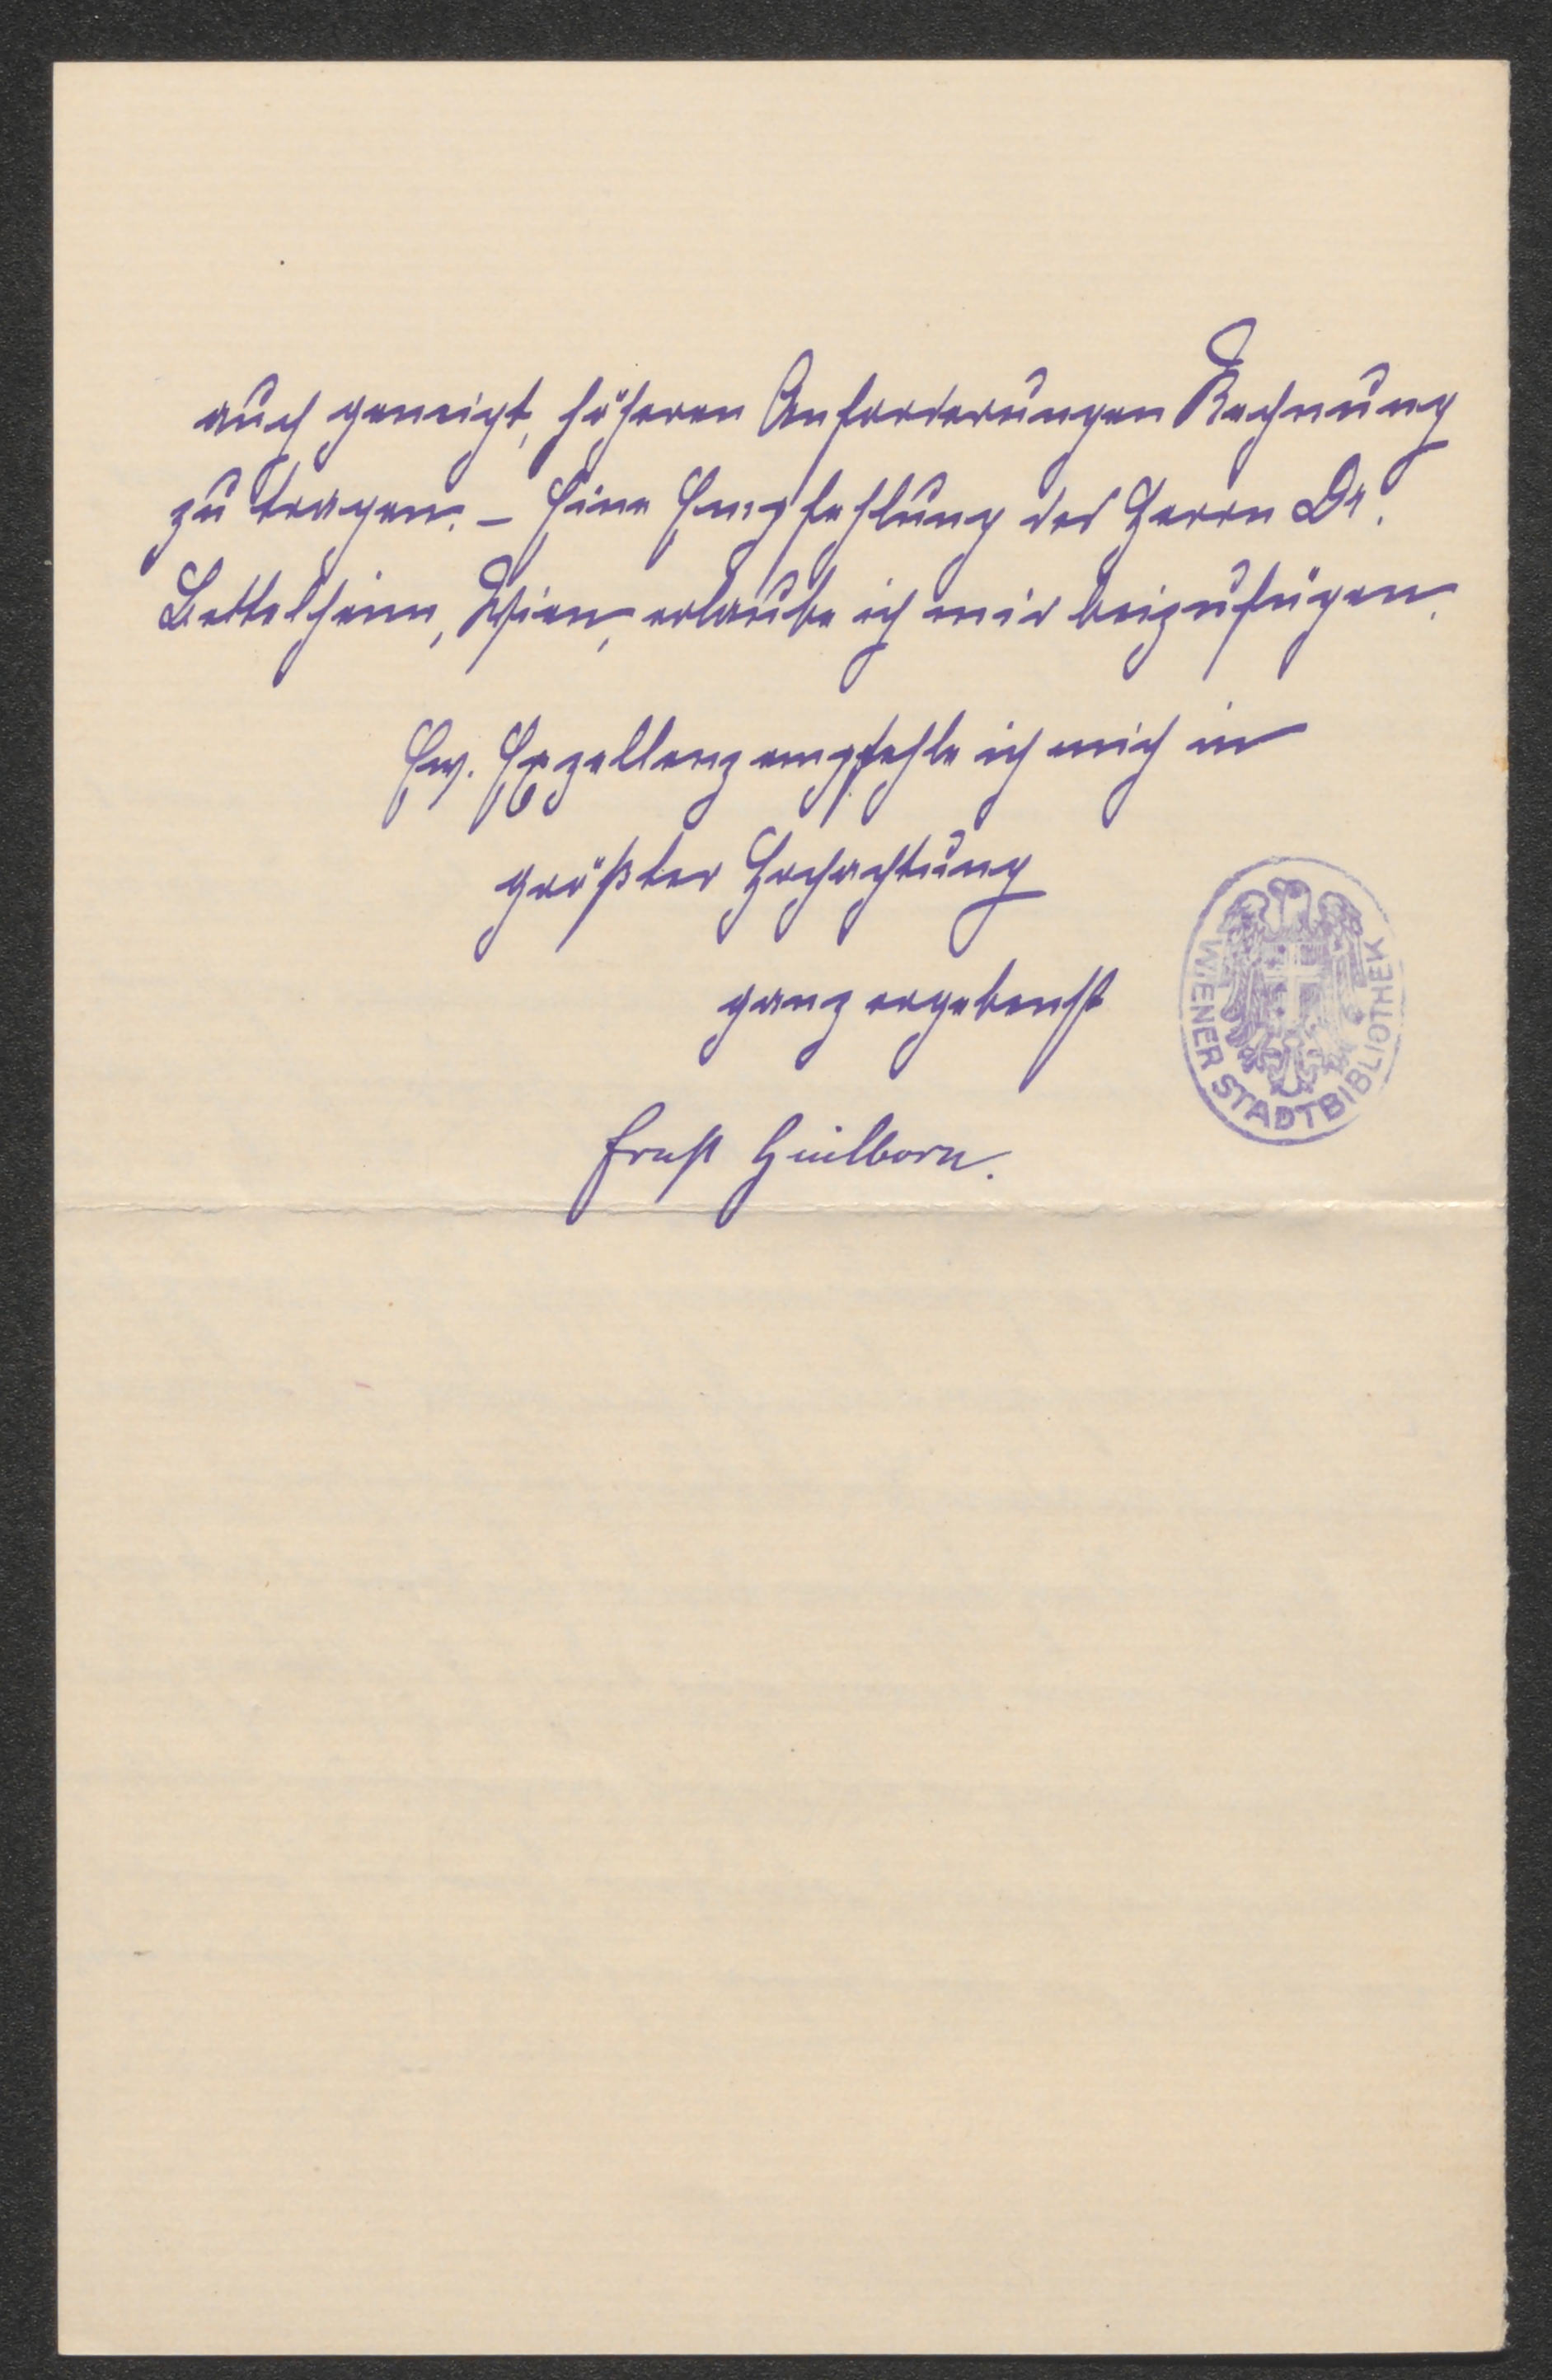 auch geneigt, höheren Anforderungen Rechnung
zu tragen. – Eine Empfehlung des Herrn Dr.
Bettelheim, Wien, erlaube ich mir beizufügen.
Ew. Exzellenz empfehle ich mich in
größter Hochachtung
ganz ergebenst
Ernst Heilborn.
WIENER STADTBIBLIOTHEK